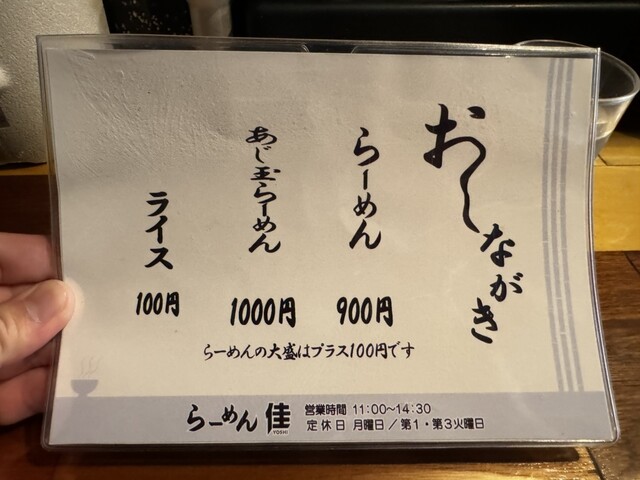 おしながき
らーめん
900円
あじ玉らーめん
1000円
ライス
100円
らーめんの大盛はプラス100円です
らーめん 佳
YOSHI
営業時間 11:00~14:30
定休日 月曜日/第1・第3火曜日